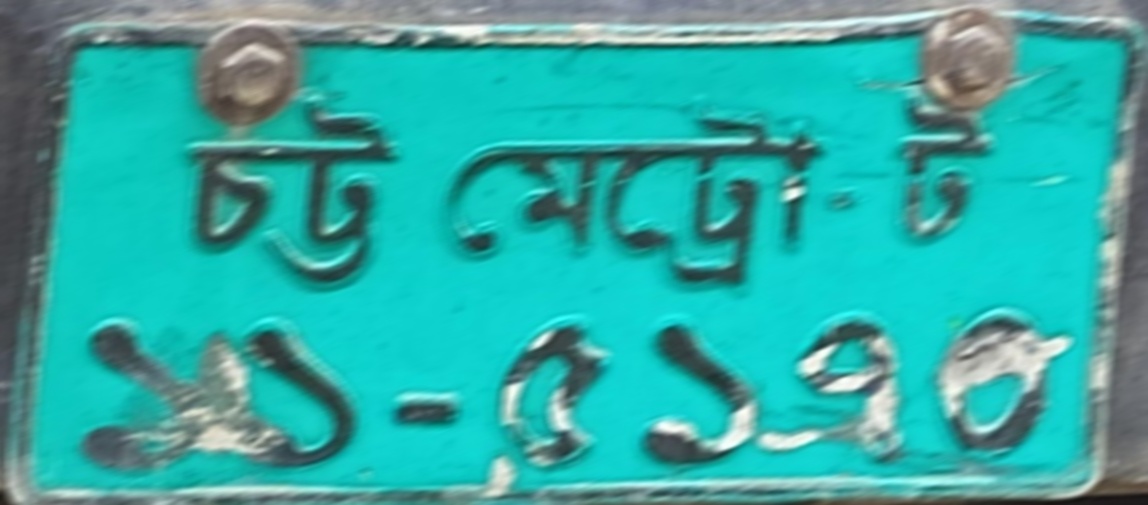 চট্ট মেট্রো-ট
১১-৫১৭৪